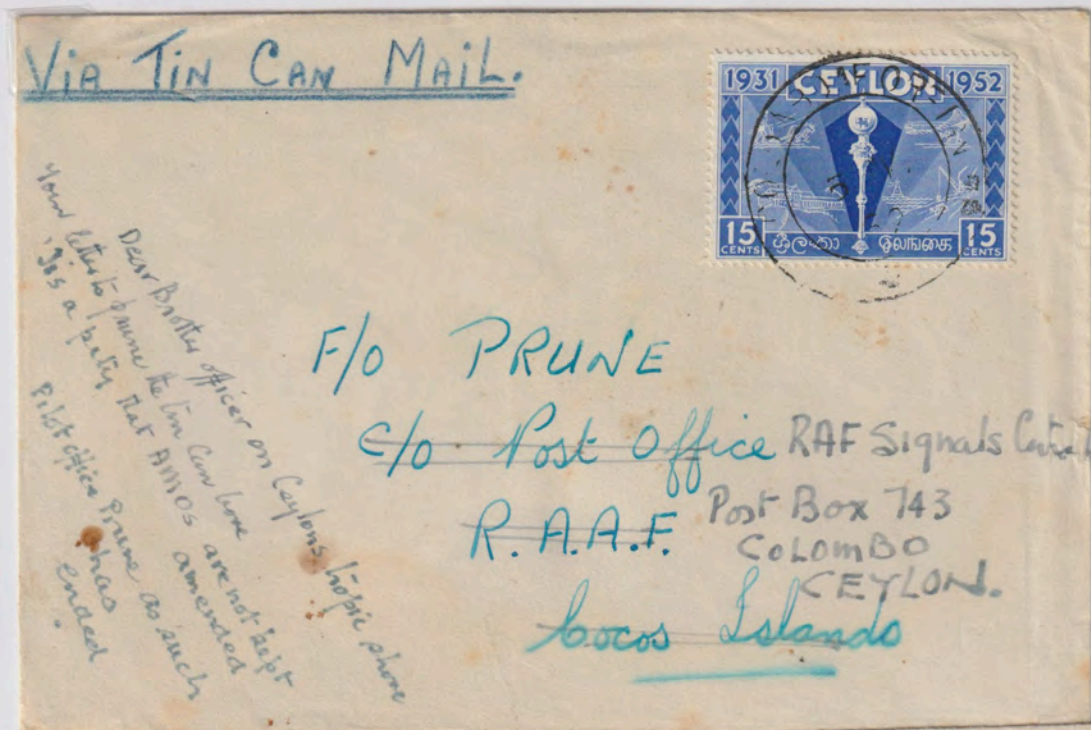 Via Tin Can Mail.
1931 CEYLON 1952
15 CENTS ශ්‍රී ලංකා இலங்கை 15 CENTS
F/O PRUNE
C/o Post Office RAF Signals
R.A.A.F. Post Box 743
COLOMBO
CEYLON.
Cocos Islands
Dear Brother officer on Ceylons tropic shore
Your letter to prune the tin can bore
'Tis a pity that AMOs are not kept
amended
Pilot officer Prune as such
has
ended